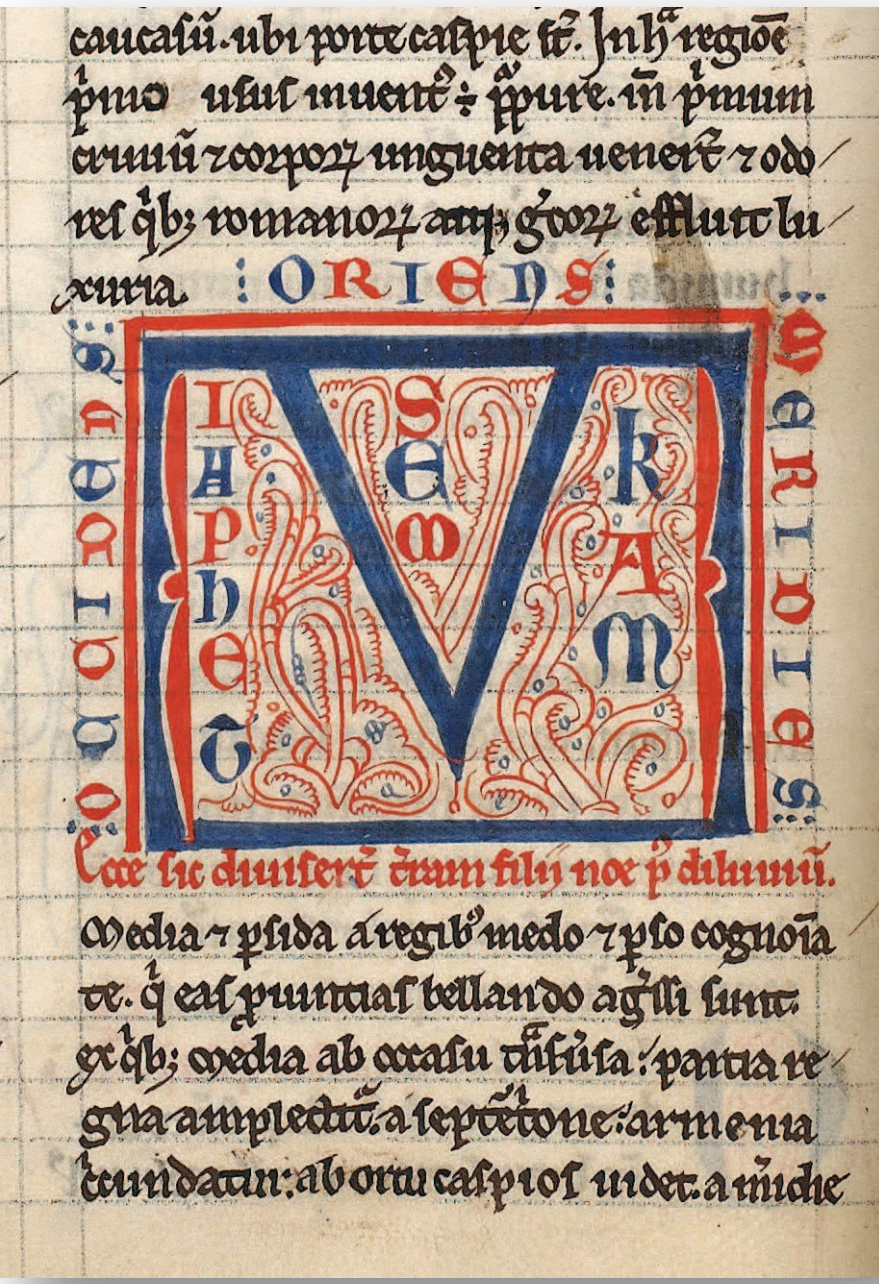 caucasū. ubi porte caspie st̄. In hͣ regiōe
pͥmo usus inuentꝰ ÷ pͥpure. in̄ pͥmum
criniū ⁊ corporꝝ unguenta uener̄t ⁊ odo
res qͥbꝫ romanorꝝ atqꝫ gͨcorꝝ effluit lu
xuria.
ORIENS
OCCIDENS
IAPHET
SEM
KAM
MERIDIES
Ecce sic diuiser̄t t̄ram filii noe p̄ diluuiū.
Media ⁊ ꝑsida a regibꝰ medo ⁊ ꝑso cognoīa
te. qͥ eas ꝓuintias bellando agͣssi sunt.
ex qͥbꝫ media ab occasu tͣnsūsa. partia re
gna amplectit᷑. a septēt̄one. armenia
cͥcundatur. ab ortu caspios uidet. a m̄idie